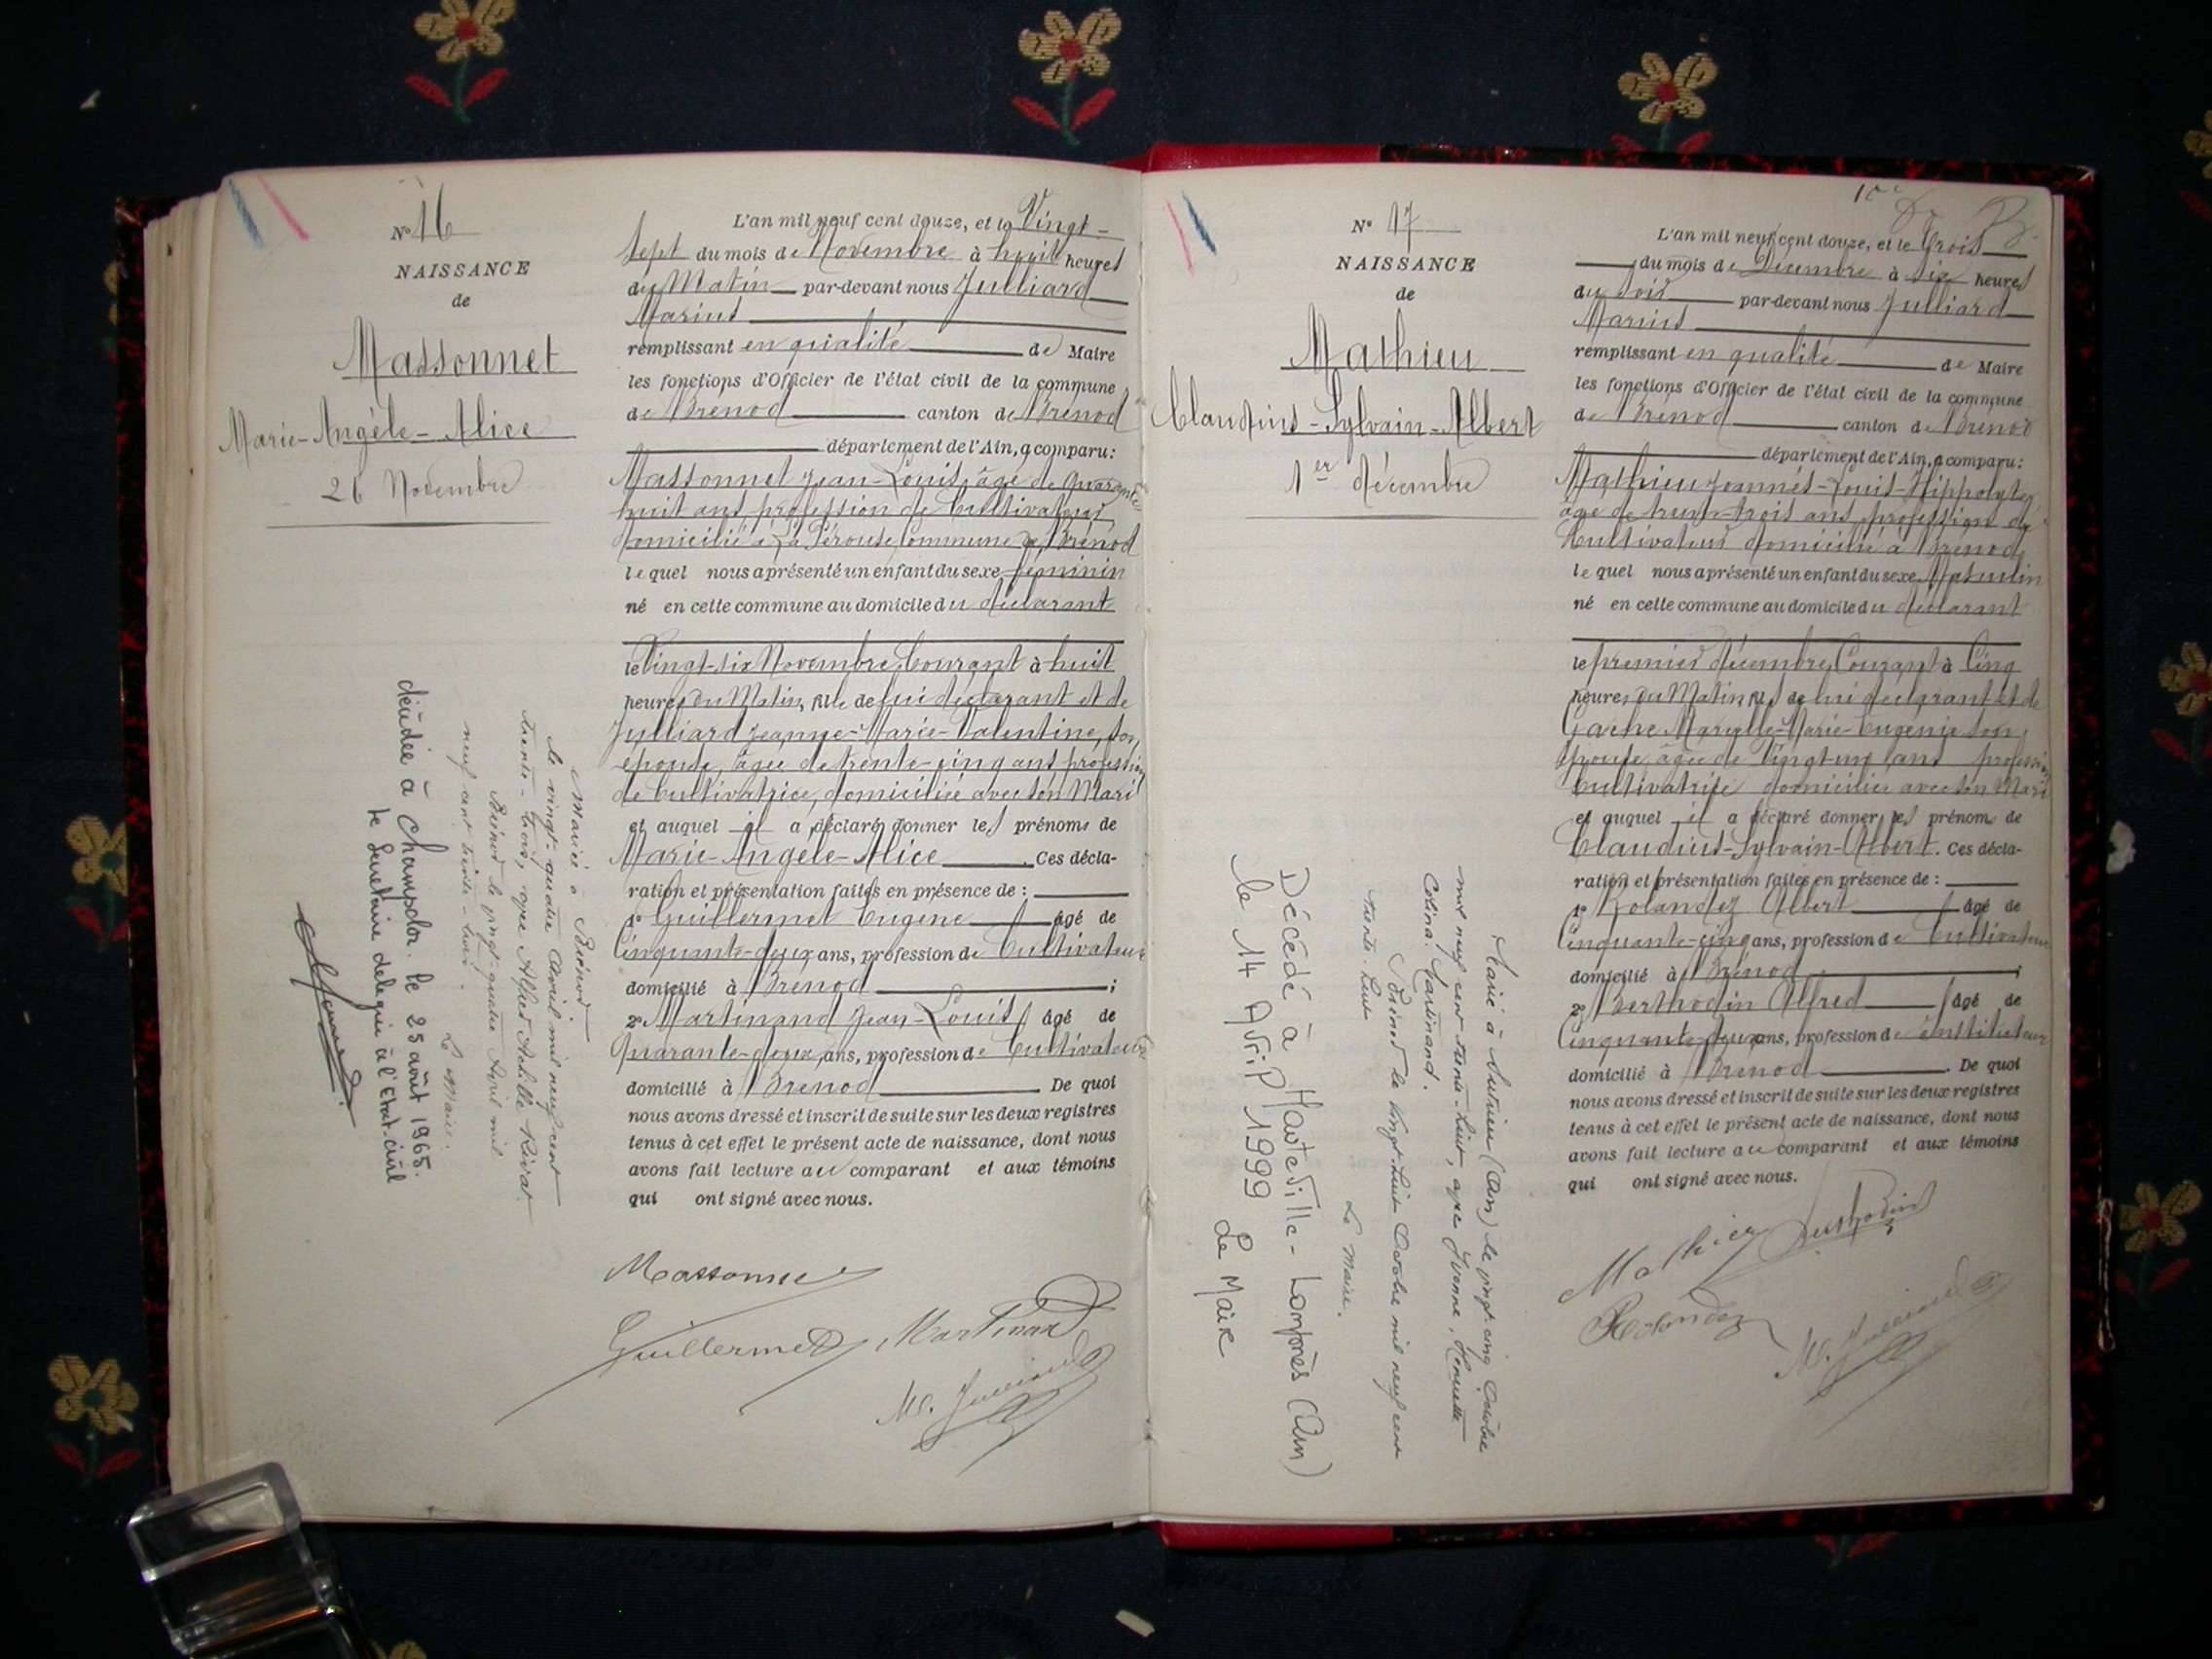 N° 16
NAISSANCE
de
Massonnet
Marie-Angèle-Alice
26 Novembre
Mariée à Brénod
le vingt-quatre Avril mil neuf cent
trente-trois, avec Alfred Achille Rivat.
Brénod le vingt-quatre Avril mil
neuf cent trente-trois.
Le Maire.
décédée à Champdor. le 25 août 1965.
le Secrétaire délégué à l'Etat-civil
L'an mil neuf cent douze, et le Vingt-
sept du mois de Novembre à huit heures
du Matin par-devant nous Julliard
Marius
remplissant en qualité de Maire
les fonctions d'Officier de l'état civil de la commune
de Brenod canton de Brenod
département de l'Ain, a comparu:
Massonnet Jean-Louis, âgé de quarante
huit ans, profession de Cultivateur,
domicilié à La Pérouse commune de Brénod
lequel nous a présenté un enfant du sexe féminin
né en cette commune au domicile du déclarant
le Vingt-six Novembre, Courant à huit
heures du Matin, fille de lui déclarant et de
Julliard Jeanne-Marie-Valentine, son
épouse, âgée de trente-cinq ans profession
de Cultivatrice, domiciliée avec son Mari
et auquel il a déclaré donner les prénoms de
Marie-Angèle-Alice. Ces décla-
ration et présentation faites en présence de :
1° Guillermet Eugène âgé de
Cinquante-deux ans, profession de Cultivateur
domicilié à Brenod ;
2° Martinand Jean-Louis âgé de
Quarante-deux ans, profession de Cultivateur
domicilié à Brenod. De quoi
nous avons dressé et inscrit de suite sur les deux registres
tenus à cet effet le présent acte de naissance, dont nous
avons fait lecture au comparant et aux témoins
qui ont signé avec nous.
Massonnet
Guillermet Martinand
M. Julliard
N° 17
NAISSANCE
de
Mathieu
Claudius-Sylvain-Albert
1er décembre
Marié à Sutrieu (Ain) le vingt-cinq Octobre
mil neuf cent trente-huit, avec Yvonne, Henriette
Martinand.
Brénod le vingt-huit Octobre mil neuf cent
trente-huit
Le Maire.
Décédé à Hauteville-Lompnès (Ain)
le 14 Avril 1999 Le Maire
L'an mil neuf cent douze, et le trois
du mois de Décembre à six heures
du soir par-devant nous Julliard
Marius
remplissant en qualité de Maire
les fonctions d'Officier de l'état civil de la commune
de Brenod canton de Brenod
département de l'Ain, a comparu:
Mathieu Joannès-Louis-Hippolyte,
âgé de trente-trois ans, profession de
Cultivateur domicilié à Brénod,
lequel nous a présenté un enfant du sexe Masculin
né en cette commune au domicile du déclarant
le premier décembre, Courant à Cinq
heures du Matin, fils de lui déclarant et de
Marie-Eugénie son
épouse, âgée de Vingt-un ans profession
Cultivatrice domiciliée avec son Mari
et auquel il a déclaré donner les prénoms de
Claudius-Sylvain-Albert. Ces décla-
ration et présentation faites en présence de :
1° Rolandez Albert âgé de
Cinquante-cinq ans, profession de Cultivateur
domicilié à Brénod ;
2° Berthodin Alfred âgé de
Cinquante-deux ans, profession de instituteur
domicilié à Brenod. De quoi
nous avons dressé et inscrit de suite sur les deux registres
tenus à cet effet le présent acte de naissance, dont nous
avons fait lecture au comparant et aux témoins
qui ont signé avec nous.
Mathieu Berthodin
Rolandez
M. Julliard